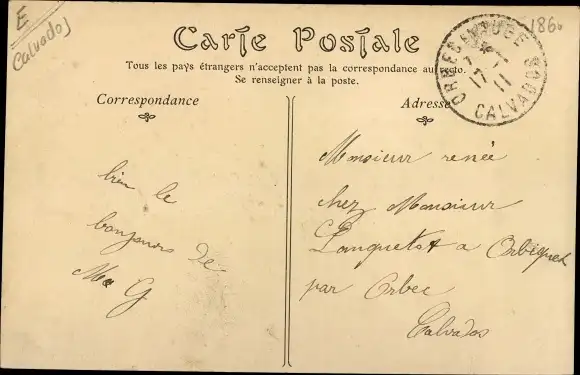 E
Calvados
1860
Carte Postale
Tous les pays étrangers n'acceptent pas la correspondance au recto.
Se renseigner à la poste.
Correspondance
Adresse
CALVADOS
17 11
bien le
bonjours de
G
Monsieur renée
chez Monsieur
Lanquetot a Orbiquet
par Orbec
Calvados